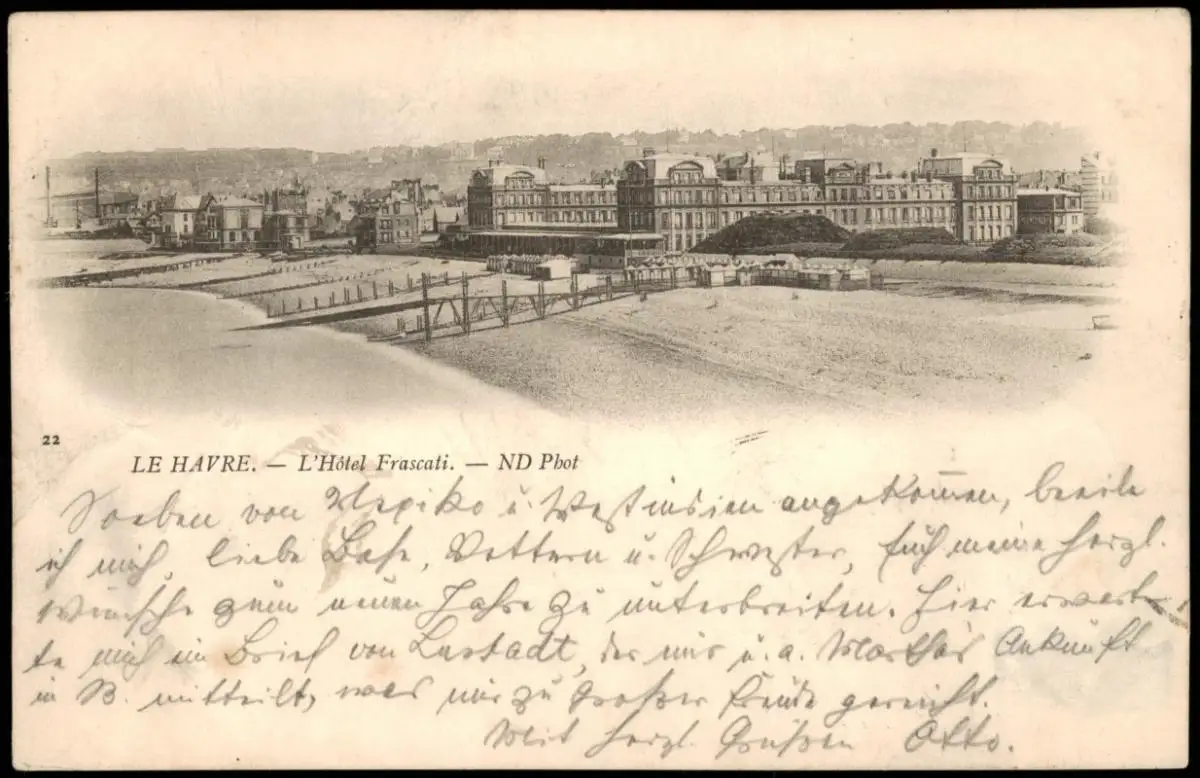 22
LE HAVRE. — L'Hôtel Frascati. — ND Phot
Soeben von Mexiko u. Westindien angekommen, beeile
ich mich, liebe Base, Vettern u. Schwester, Euch meine herzl.
Wünsche zum neuen Jahre zu unterbreiten. Hier erwart-
te mich ein Brief von Lastadt, der mir u. a. Marthas Ankunft
in B. mitteilt, was mir zu großer Freude gereicht.
Mit herzl. Grüßen Otto.